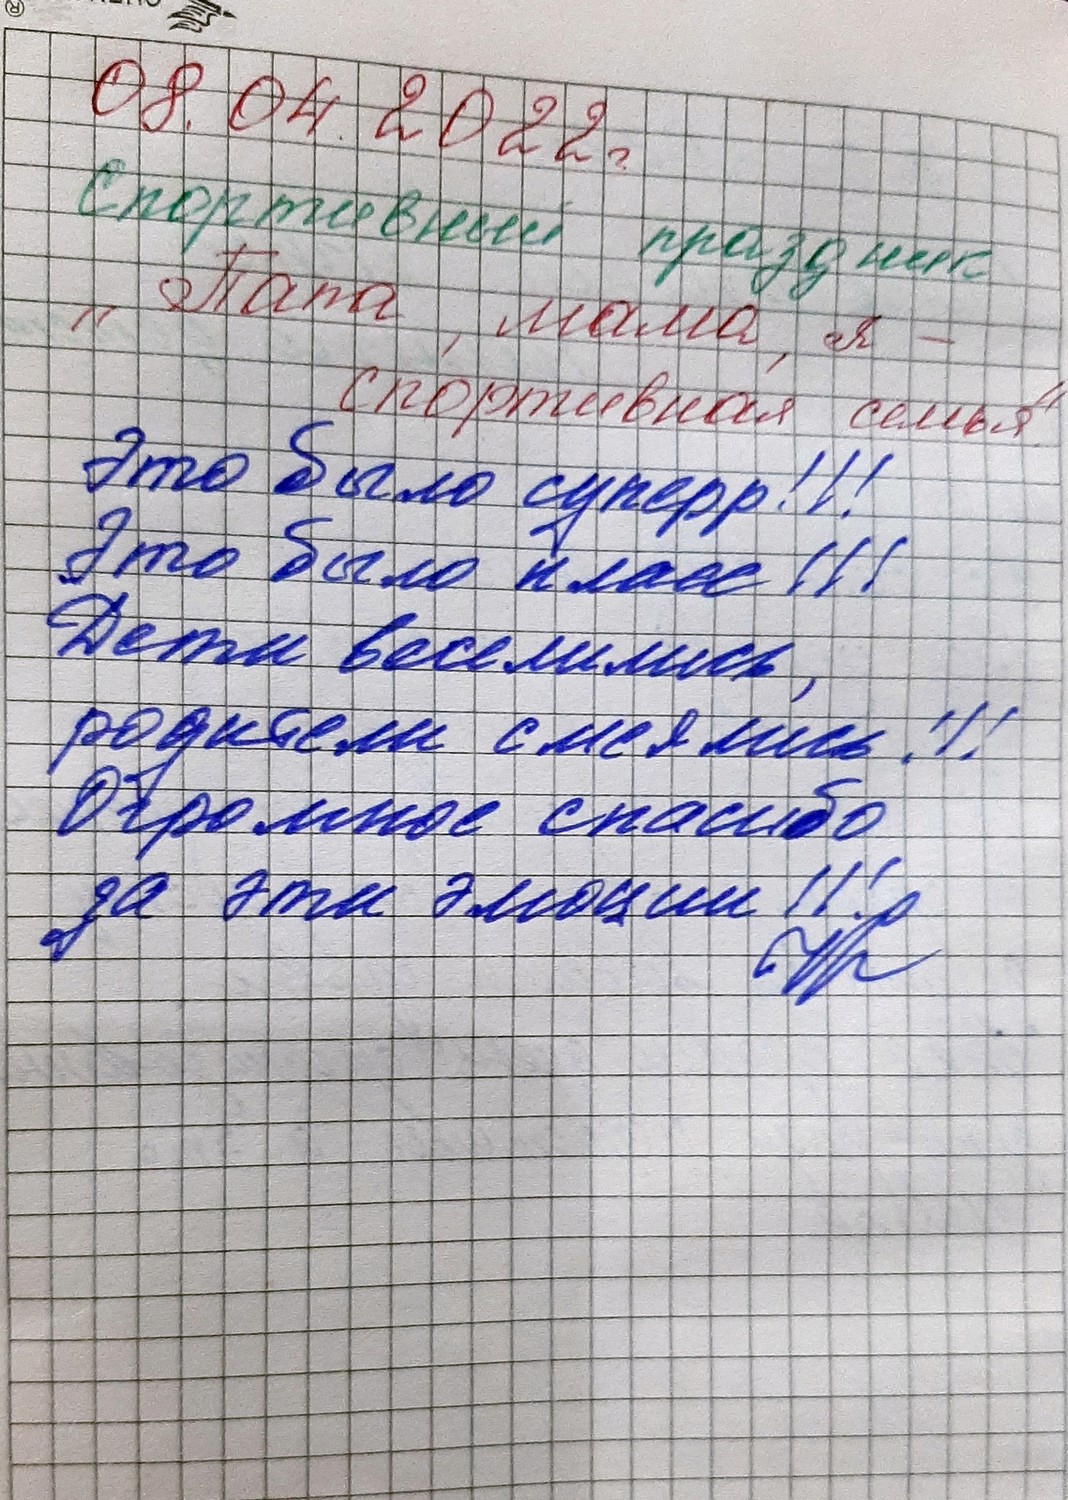 08.04.2022г.
Спортивный праздник
„Папа, мама, я –
спортивная семья"
Это было суперр!!!
Это было класс!!!
Дети веселились,
родители смеялись!!!
Огромное спасибо
за эти эмоции!!!